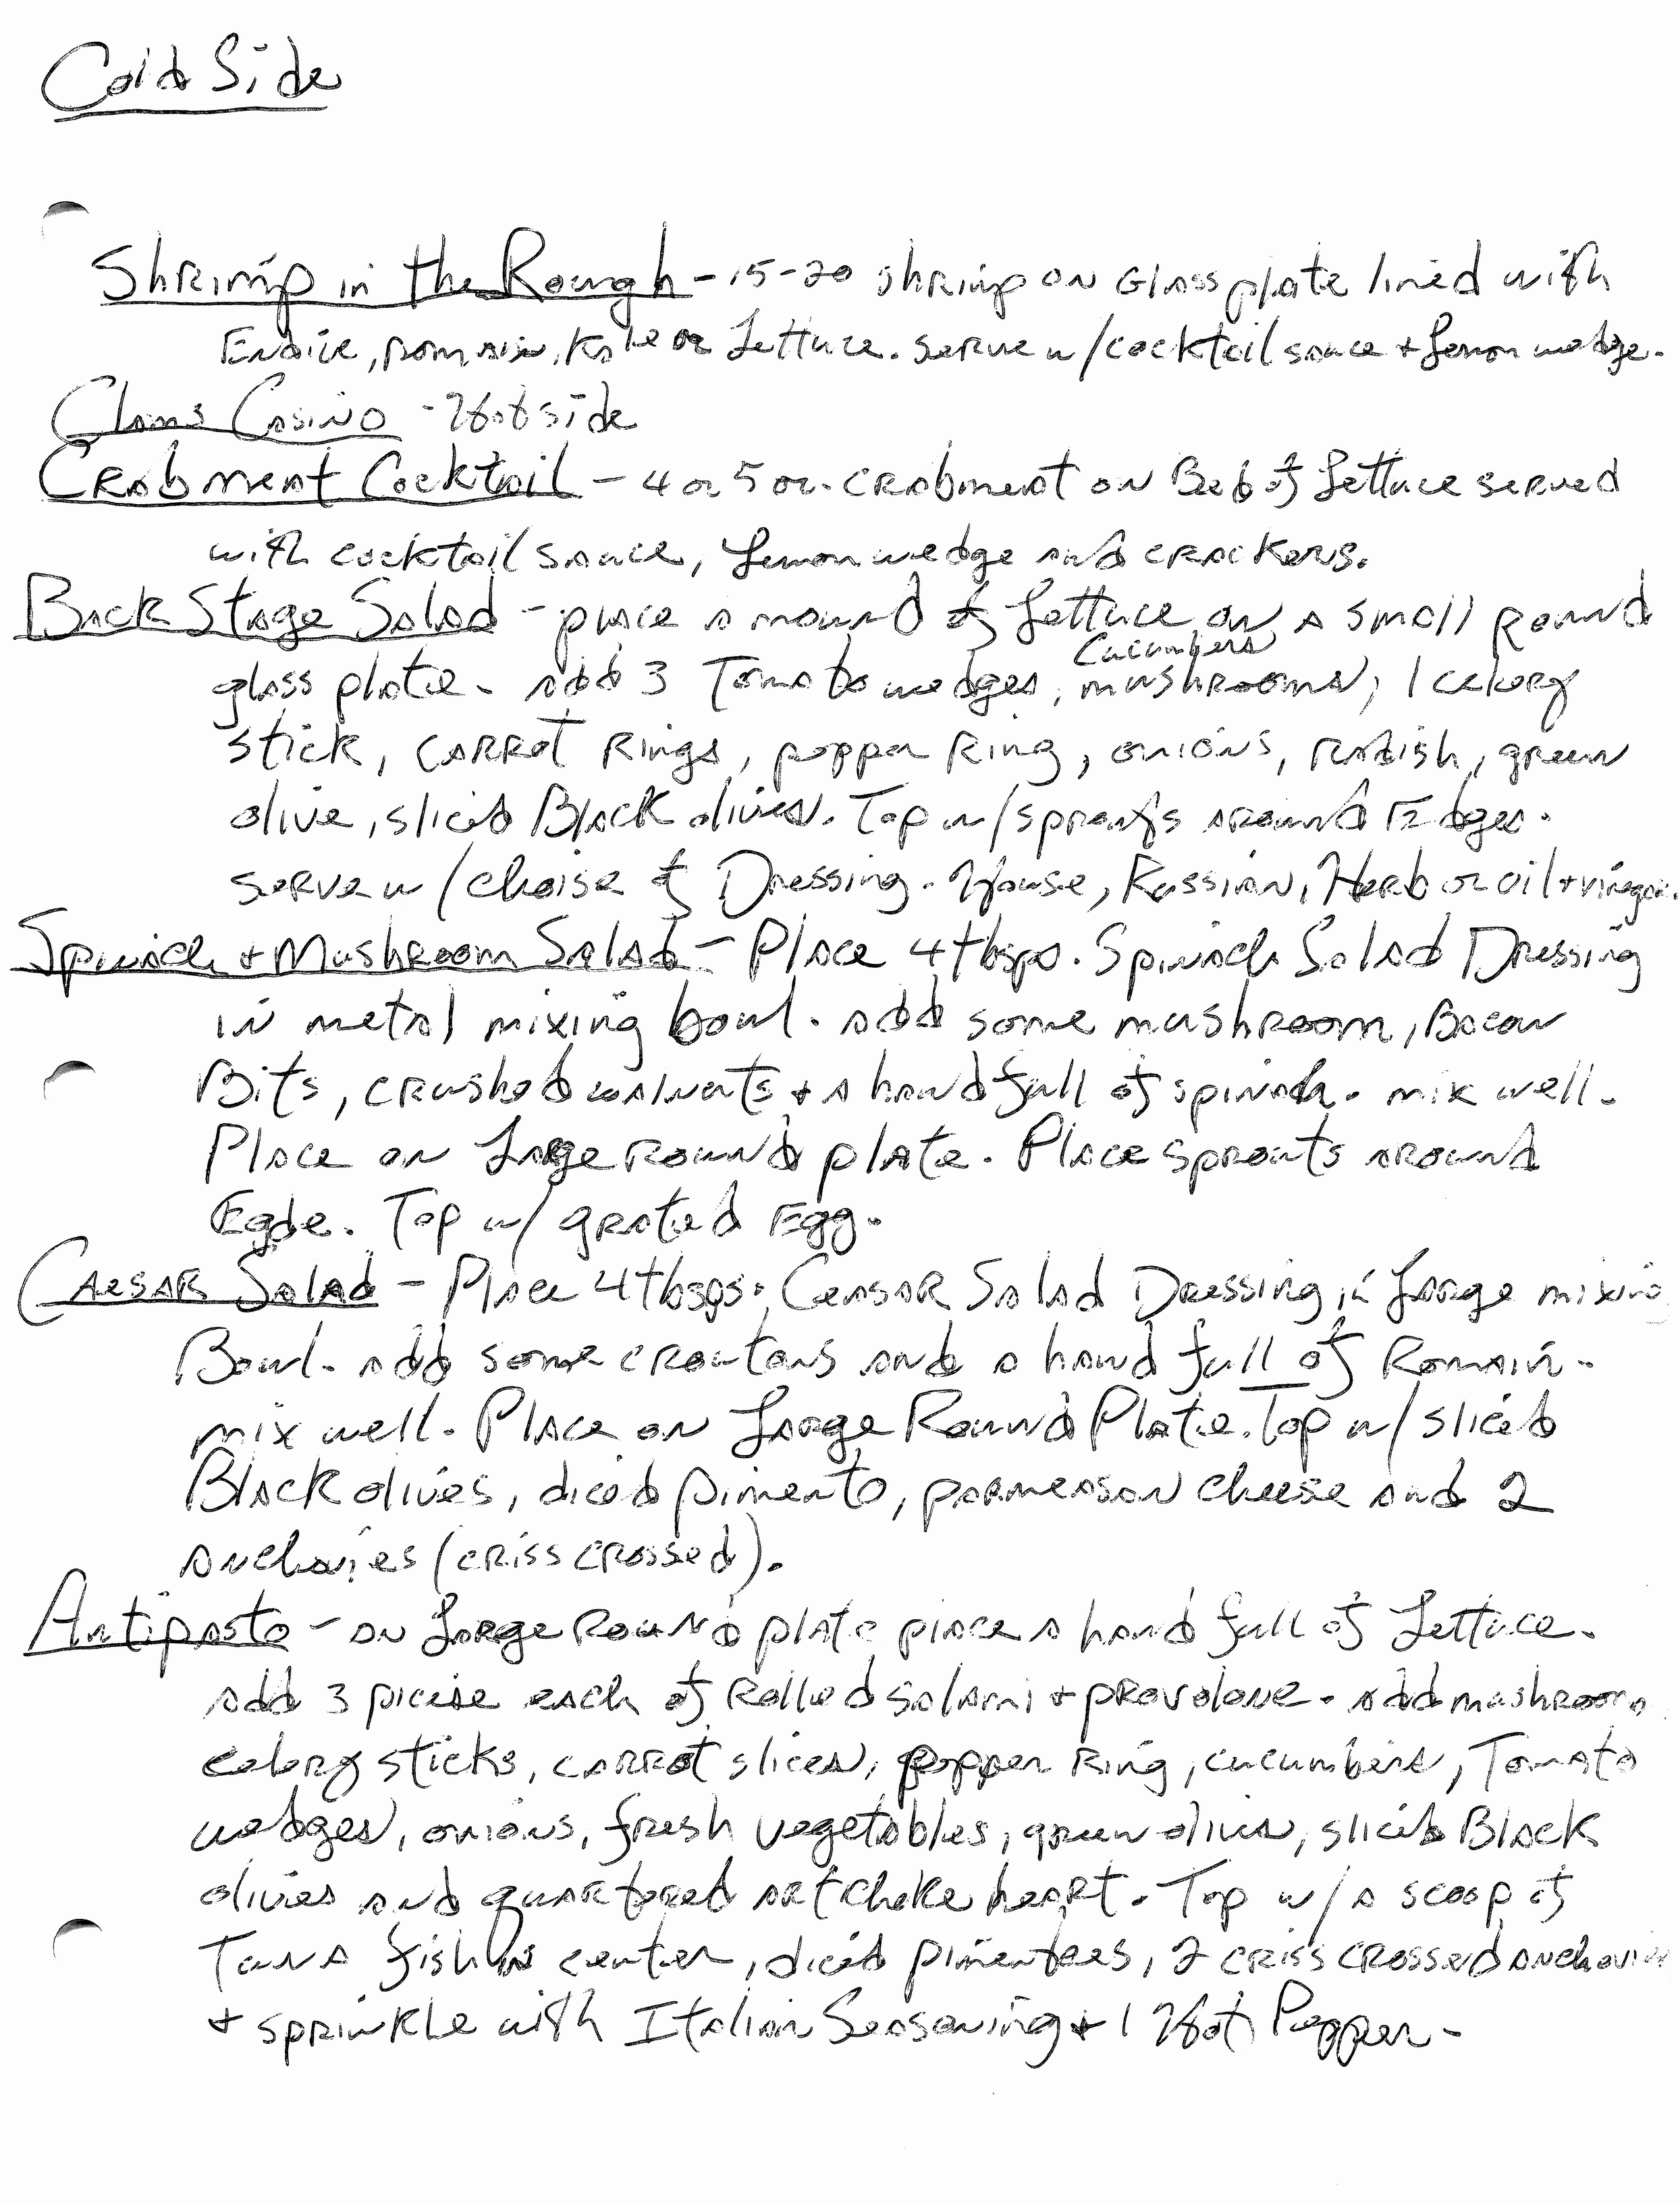 Cold Side
Shrimp in the Rough - 15-20 shrimp on Glass plate lined with
Endive, romain, Kale or Lettuce. serve w/cocktail sauce + Lemon wedge.
Clams Casino - Hot side
Crabmeat Cocktail - 4 or 5 oz. crabmeat on Bed of Lettuce served
with cocktail sauce, Lemon wedge and crackers.
Back Stage Salad - place a mound of Lettuce on a small round
Cucumbers
glass plate. add 3 Tomato wedges, mushrooms, 1 celery
stick, carrot rings, pepper ring, onions, radish, green
olive, sliced Black olives. Top w/sprouts around Edges.
serve w/choise of Dressing. House, Russian, Herb or oil + vinegar.
Spinach + Mushroom Salad - Place 4 tbsps. Spinach Salad Dressing
in metal mixing bowl. add some mushroom, Bacon
Bits, crushed walnuts + a hand full of spinach. mix well.
Place on Large round plate. Place sprouts around
Egde. Top w/ grated Egg.
Caesar Salad - Place 4 tbsps. Ceasar Salad Dressing in Large mixing
Bowl. add some croutons and a hand full of Romain.
mix well. Place on Large Round Plate. Top w/ sliced
Black olives, diced pimento, parmeason cheese and 2
anchovies (criss crossed).
Antipasto - on Large Round plate place a hand full of Lettuce.
add 3 piceise each of Rolled salami + provolone. add mushrooms
celery sticks, carrot slices, pepper Ring, cucumbers, Tomato
wedges, onions, fresh vegetables, green olives, sliced Black
olives and quartered artchoke heart. Top w/ a scoop of
Tuna fish in center, diced pimentoes, 2 criss crossed anchovies
+ sprinkle with Italian Seasoning + 1 Hot Pepper.